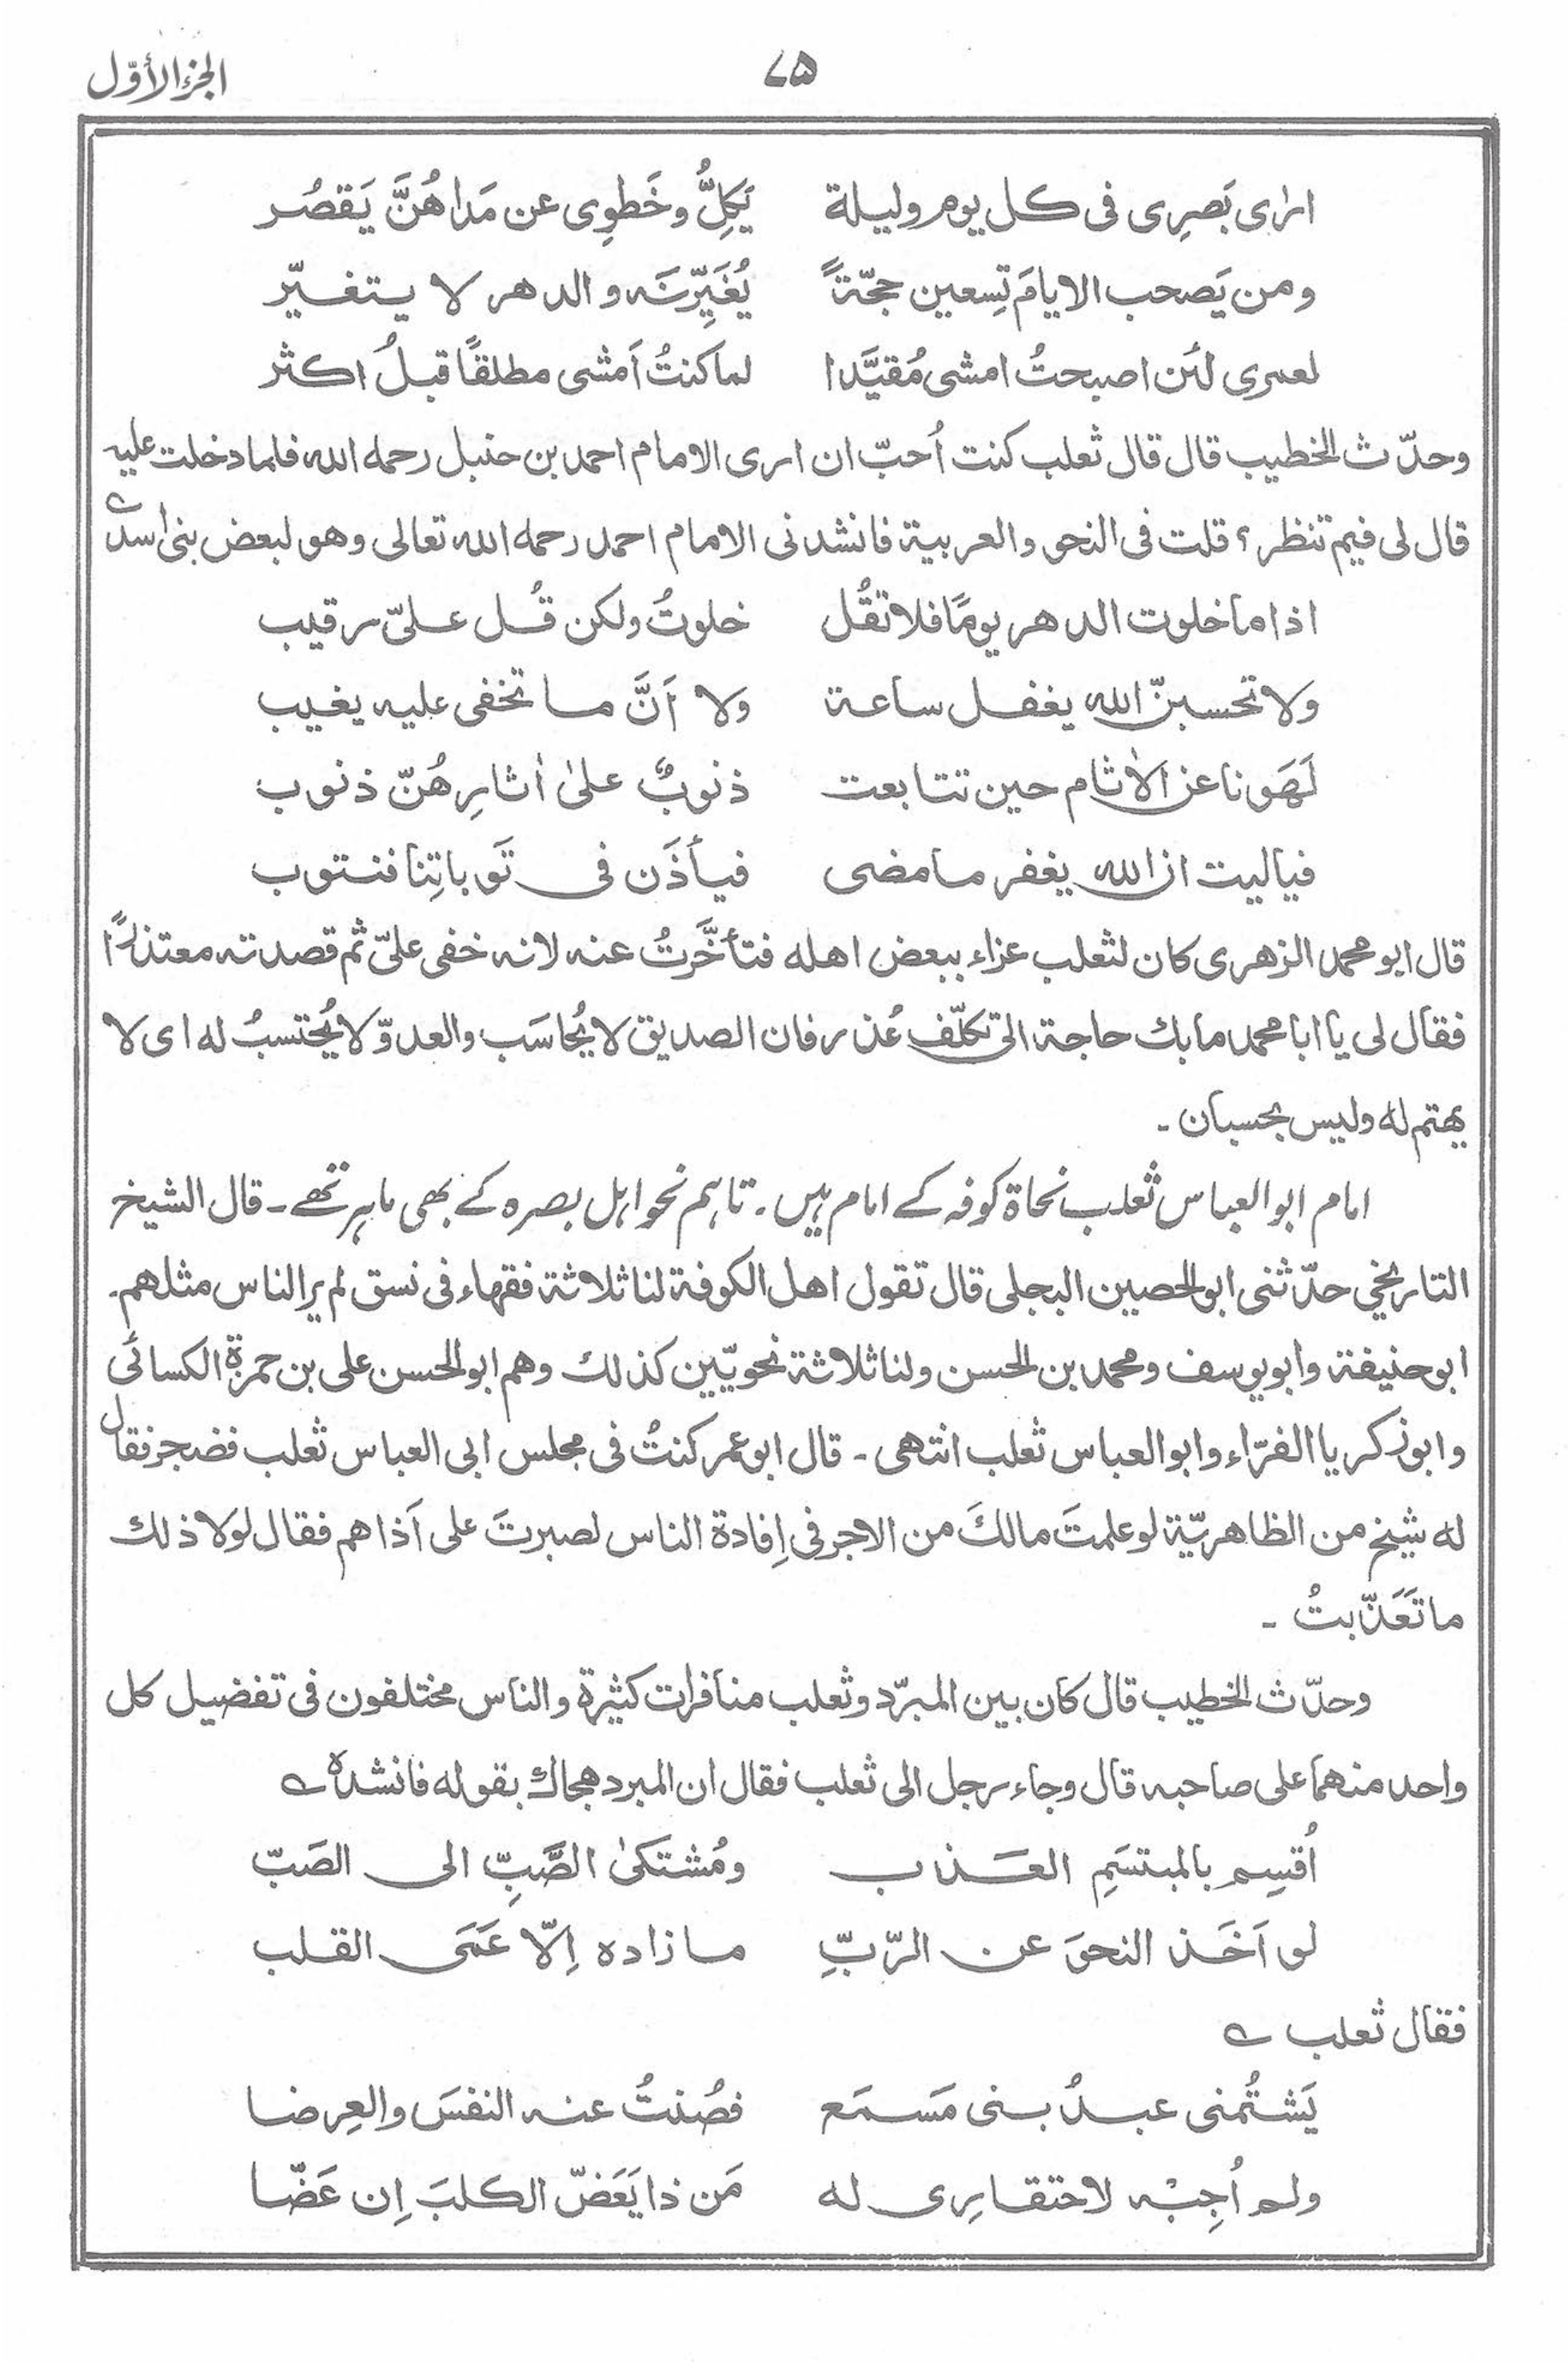 الجزء الأوّل
٧۵
ارٰی بَصرِی فی کل یوم ولیلة یَکِلُّ وخَطوِی عن مَداهُنَّ یَقصُر
ومن یَصحب الایامَ تِسعین حجّةً یُغَیِّرنَه والدهر لا یتغیّر
لعمری لئن اصبحتُ امشی مُقیَّدا لما کنتُ اَمشی مطلقًا قبلُ اکثر
وحدّث الخطیب قال قال ثعلب کنت اُحبّ ان اری الامام احمد بن حنبل رحمه الله فلما دخلت علیه
قال لی فیم تنظر؟ قلت فی النحو والعربیة فانشدنی الامام احمد رحمه الله تعالی وهو لبعض بنی اسد ؎
اذا ما خلوت الدهر یومًا فلا تقُل خلوتُ ولکن قُل علیّ رقیب
ولا تحسبنّ الله یغفل ساعة ولا اَنَّ ما تخفی علیه یغیب
لَهَونا عن الاٰثام حین تتابعت ذنوبٌ علیٰ اٰثارِهُنّ ذنوب
فیالیت ان الله یغفر ما مضی فیأذَن فی تَوباتِنا فنتوب
قال ابو محمد الزهری کان لثعلب عزاء ببعض اهله فتأخَّرتُ عنه لانه خفی علیّ ثم قصدته معتذرًا
فقال لی یا ابا محمد ما بك حاجة الی تکلّف عُذر فان الصدیق لا یُحاسَب والعدوّ لا یُحتسبُ له ای لا
یهتم له ولیس بحسبان ۔
امام ابو العباس ثعلب نحاة کوفہ کے امام ہیں ۔ تاہم نحو اہل بصرہ کے بھی ماہر تھے ۔ قال الشیخ
التاریخی حدّثنی ابو الحصین البجلی قال تقول اهل الکوفة لنا ثلاثة فقهاء فی نسق لم یر الناس مثلهم۔
ابو حنیفة وابو یوسف ومحمد بن الحسن ولنا ثلاثة نحویّین کذلك وهم ابو الحسن علی بن حمزة الکسائی
وابو زکریا الفرّاء وابو العباس ثعلب انتهی ۔ قال ابو عمر کنتُ فی مجلس ابی العباس ثعلب فضجر فقال
له شیخ من الظاهریّة لو علمتَ مالكَ من الاجر فی اِفادة الناس لصبرتَ علی اَذاهم فقال لولا ذلك
ما تَعَذّبتُ ۔
وحدّث الخطیب قال کان بین المبرّد وثعلب منافرات کثیرة والناس مختلفون فی تفضیل کل
واحد منهما علی صاحبه قال وجاء رجل الی ثعلب فقال ان المبرد هجاك بقوله فانشده ؎
اُقسِم بالمبتسَمِ العَذب ومُشتکیٰ الصَّبِّ الی الصَبّ
لو اَخَذ النحوَ عن الرّبِّ ما زاده اِلّا عَمَی القلب
فقال ثعلب ؎
یَشتُمنی عبدُ بنی مَسمَع فصُنتُ عنه النفسَ والعِرضا
ولم اُجِبْه لاحتقارِی له مَن ذا یَعَضّ الکلبَ اِن عَضّا